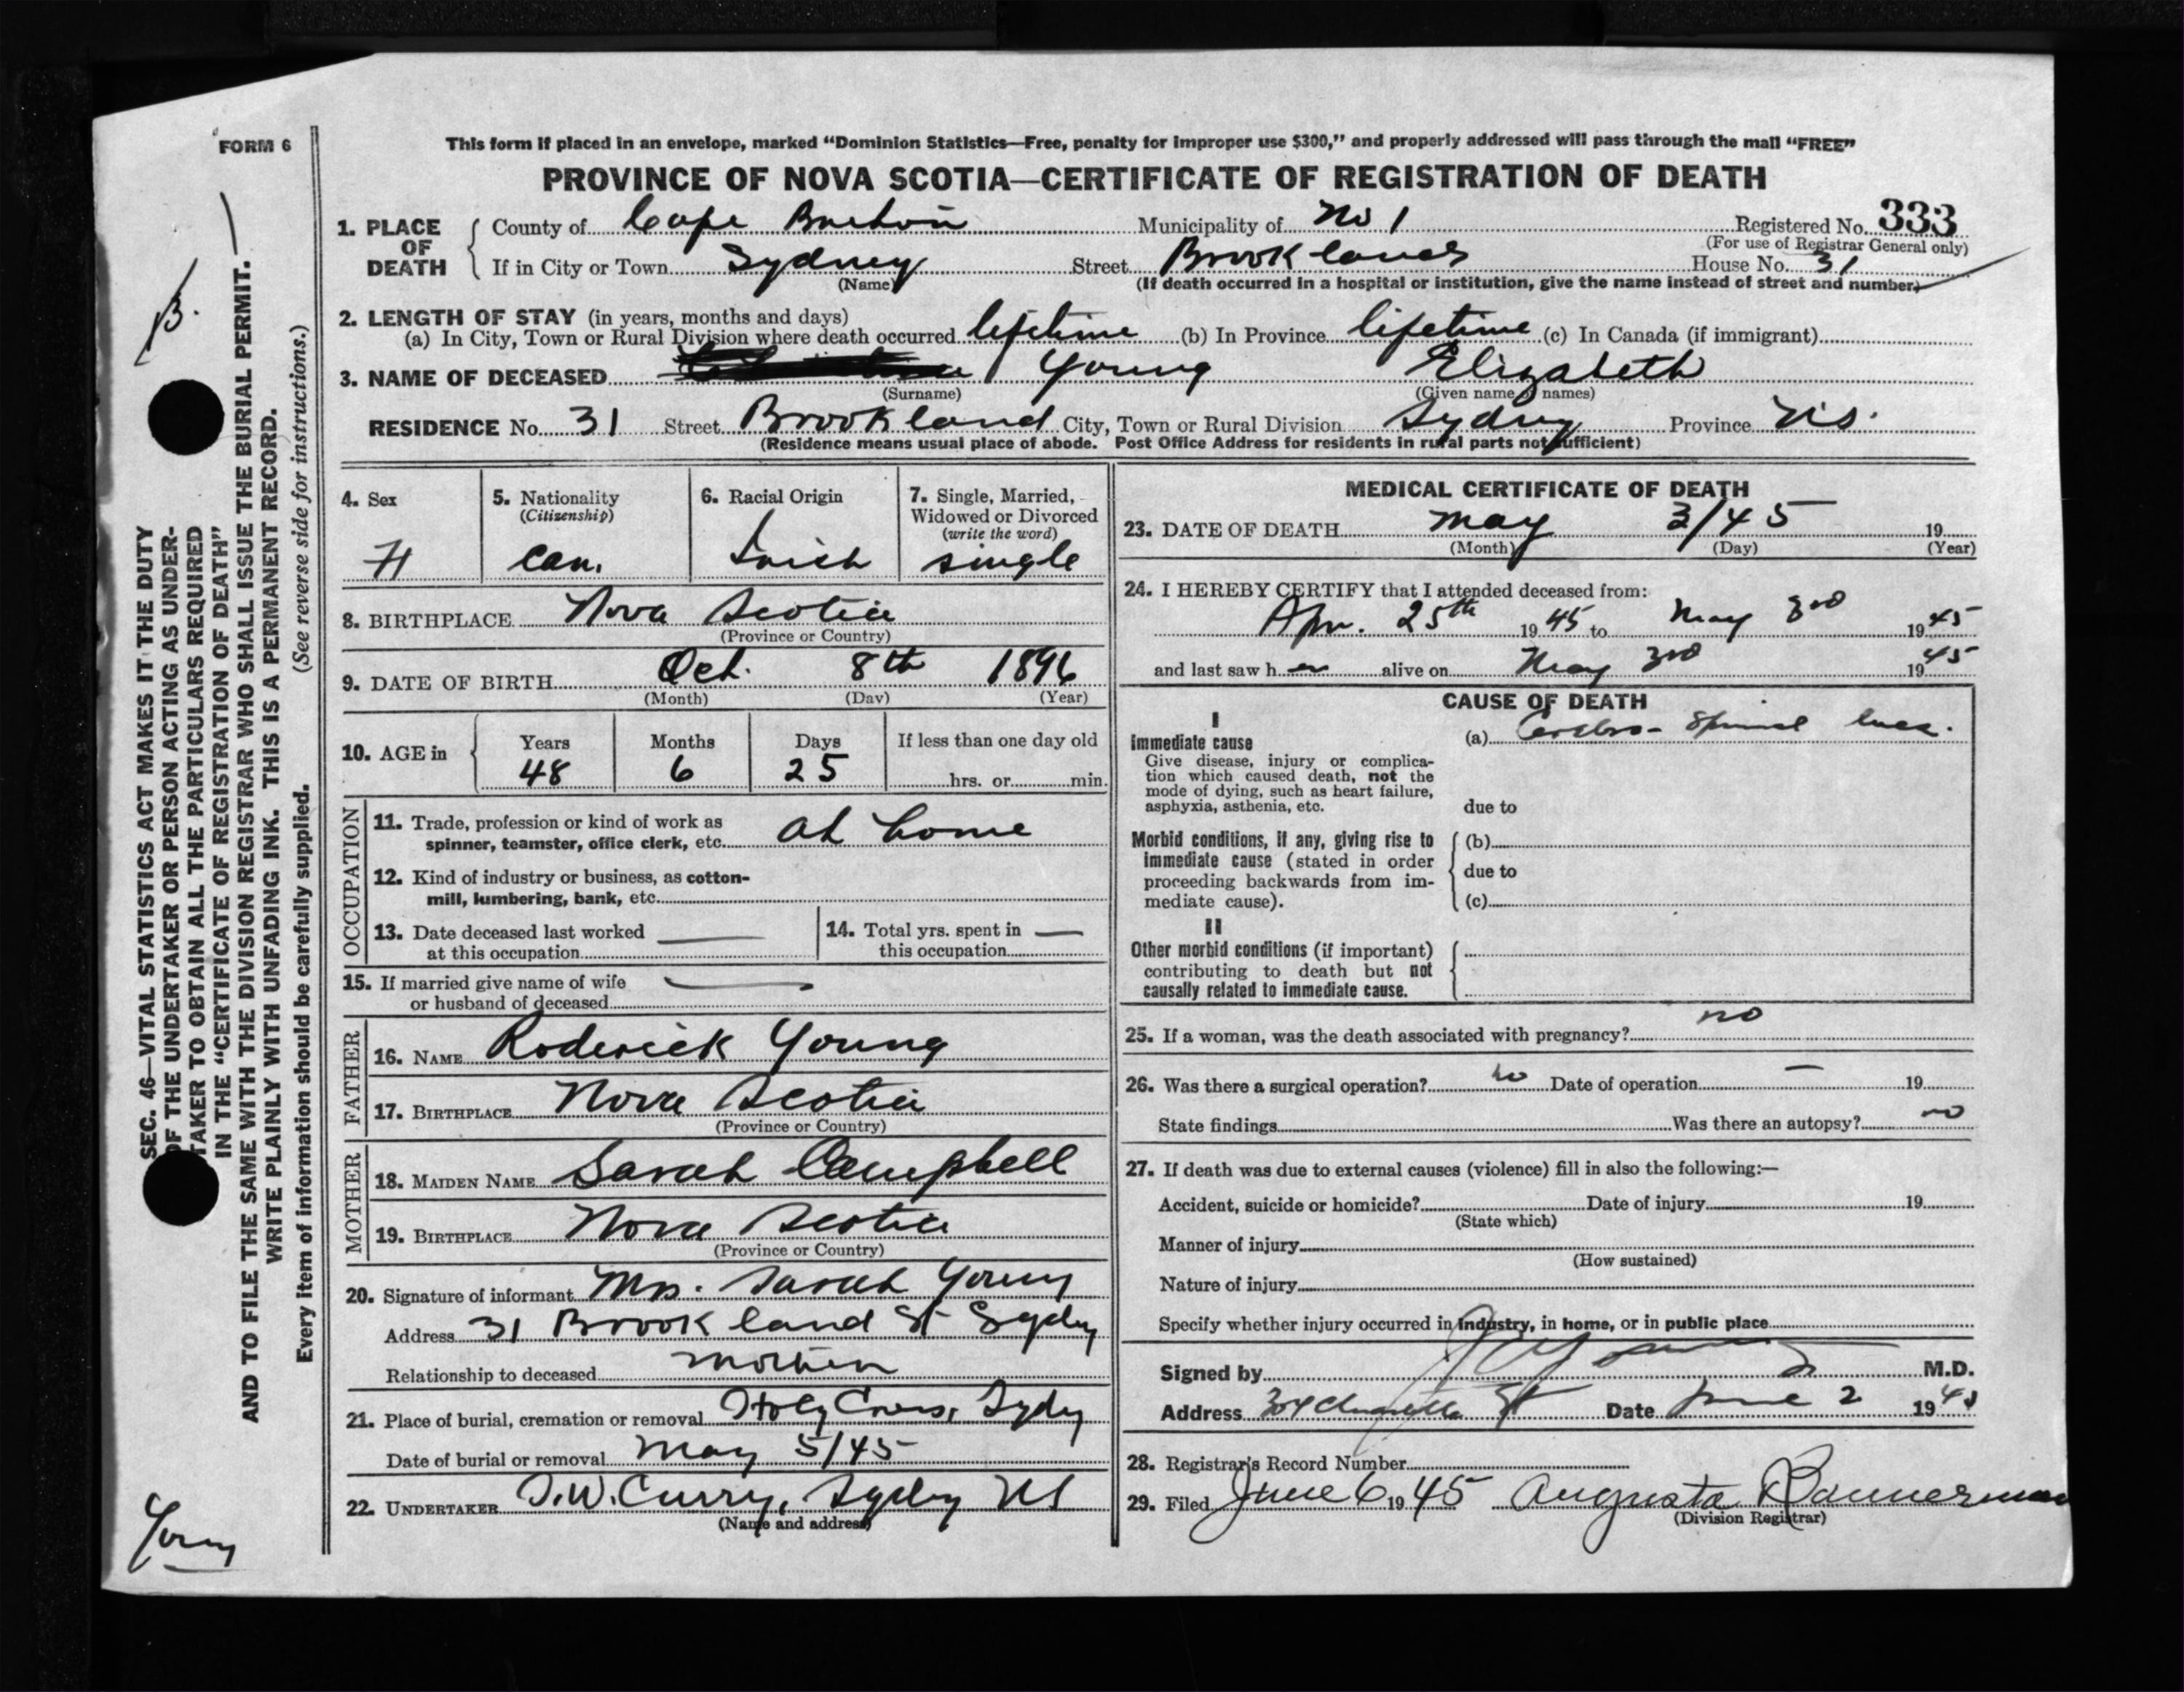 FORM 6
This form if placed in an envelope, marked "Dominion Statistics—Free, penalty for improper use $300," and properly addressed will pass through the mail "FREE"
PROVINCE OF NOVA SCOTIA—CERTIFICATE OF REGISTRATION OF DEATH
1. PLACE OF DEATH County of Cape Breton Municipality of No 1 Registered No. 333
(For use of Registrar General only)
If in City or Town Sydney Street Brookland House No. 31
(Name) (If death occurred in a hospital or institution, give the name instead of street and number)
2. LENGTH OF STAY (in years, months and days)
(a) In City, Town or Rural Division where death occurred lifetime (b) In Province lifetime (c) In Canada (if immigrant)
3. NAME OF DECEASED Young Elizabeth
(Surname) (Given name or names)
RESIDENCE No. 31 Street Brookland City, Town or Rural Division Sydney Province NS.
(Residence means usual place of abode. Post Office Address for residents in rural parts not sufficient)
4. Sex
5. Nationality
(Citizenship)
Can.
6. Racial Origin
Irish
7. Single, Married,
Widowed or Divorced
(write the word)
single
8. BIRTHPLACE Nova Scotia
(Province or Country)
9. DATE OF BIRTH Oct. 8th 1896
(Month) (Day) (Year)
10. AGE in Years Months Days If less than one day old
48 6 25 hrs. or min.
OCCUPATION
11. Trade, profession or kind of work as
spinner, teamster, office clerk, etc. at home
12. Kind of industry or business, as cotton-
mill, lumbering, bank, etc.
13. Date deceased last worked —
at this occupation
14. Total yrs. spent in —
this occupation
15. If married give name of wife —
or husband of deceased
FATHER
16. NAME Roderick Young
17. BIRTHPLACE Nova Scotia
(Province or Country)
MOTHER
18. MAIDEN NAME Sarah Campbell
19. BIRTHPLACE Nova Scotia
(Province or Country)
20. Signature of informant Mrs. Sarah Young
Address 31 Brookland St Sydney
Relationship to deceased mother
21. Place of burial, cremation or removal Holy Cross, Sydney
Date of burial or removal May 5/45
22. UNDERTAKER T.W. Curry, Sydney NS
(Name and address)
MEDICAL CERTIFICATE OF DEATH
23. DATE OF DEATH May 3/45 19
(Month) (Day) (Year)
24. I HEREBY CERTIFY that I attended deceased from:
Apr. 25th 19 45 to May 3rd 19 45
and last saw h er alive on May 3rd 19 45
CAUSE OF DEATH
I
Immediate cause
Give disease, injury or complica-
tion which caused death, not the
mode of dying, such as heart failure,
asphyxia, asthenia, etc.
(a) Cerebro-Spinal lues.
due to
Morbid conditions, if any, giving rise to
immediate cause (stated in order
proceeding backwards from im-
mediate cause).
(b)
due to
(c)
II
Other morbid conditions (if important)
contributing to death but not
causally related to immediate cause.
25. If a woman, was the death associated with pregnancy? no
26. Was there a surgical operation? no Date of operation — 19
State findings Was there an autopsy? no
27. If death was due to external causes (violence) fill in also the following:—
Accident, suicide or homicide? Date of injury 19
(State which)
Manner of injury
(How sustained)
Nature of injury
Specify whether injury occurred in industry, in home, or in public place
Signed by M.D.
Address St Date June 2 19 45
28. Registrar's Record Number
29. Filed June 6 19 45 Augusta Bannerman
(Division Registrar)
B.
SEC. 46—VITAL STATISTICS ACT MAKES IT THE DUTY
OF THE UNDERTAKER OR PERSON ACTING AS UNDER-
TAKER TO OBTAIN ALL THE PARTICULARS REQUIRED
IN THE "CERTIFICATE OF REGISTRATION OF DEATH"
AND TO FILE THE SAME WITH THE DIVISION REGISTRAR WHO SHALL ISSUE THE BURIAL PERMIT.
WRITE PLAINLY WITH UNFADING INK. THIS IS A PERMANENT RECORD.
Every item of information should be carefully supplied. (See reverse side for instructions.)
Young